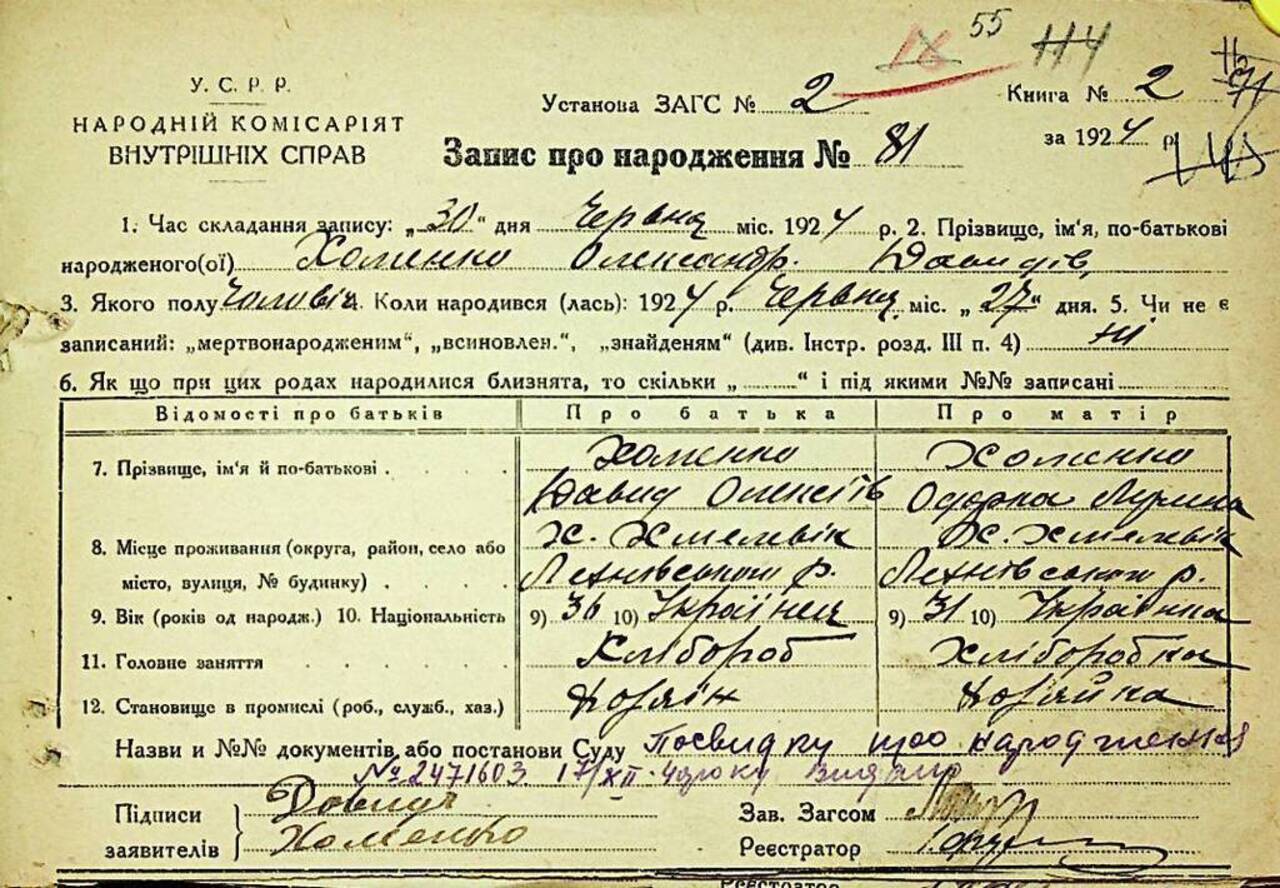 18 55 114
У. С. Р. Р.
НАРОДНІЙ КОМІСАРІЯТ
ВНУТРІШНІХ СПРАВ
Установа ЗАГС № 2
Книга № 2
за 1924 р.
Запис про народження № 81
1. Час складання запису: „30“ дня Червня міс. 1924 р. 2. Прізвище, ім'я, по-батькові
народженого(ої) Хоменко Олександр. Давидів
3. Якого полу Чоловіч. Коли народився (лась): 1924 р. Червня міс. „27“ дня. 5. Чи не є
записаний: „мертвонародженим“, „всиновлен.“, „знайденям“ (див. Інстр. розд. III п. 4) Ні
6. Як що при цих родах народилися близнята, то скільки „ “ і під якими №№ записані
Відомості про батьків Про батька Про матір
7. Прізвище, ім'я й по-батькові Хоменко Хоменко
Давид Олексіїв Одарка
8. Місце проживання (округа, район, село або Х. Хмелвік Х. Хмелвік
місто, вулиця, № будинку) р. р.
9. Вік (років од народж.) 10. Національність 9) 36 10) Українец 9) 31 10) Українка
11. Головне заняття Хлібороб Хліборобка
12. Становище в промислі (роб., служб., хаз.) Хозяїн Хозяйка
Назви и №№ документів або постанови Суду Посвидку про народження
№ 2471603 17/XII-42 року видано
Підписи заявителів Давид
Хоменко
Зав. Загсом
Реєстратор
Реєстратор